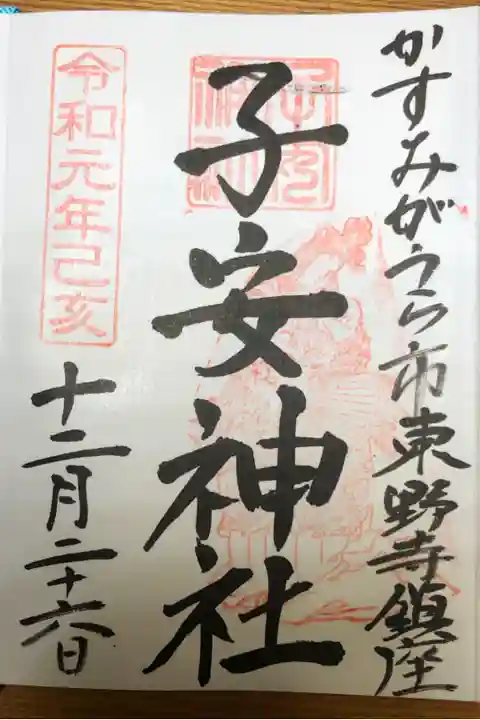 かすみがうら市東野寺鎮座
子安神社
子安神社
令和元年己亥
十二月二十六日